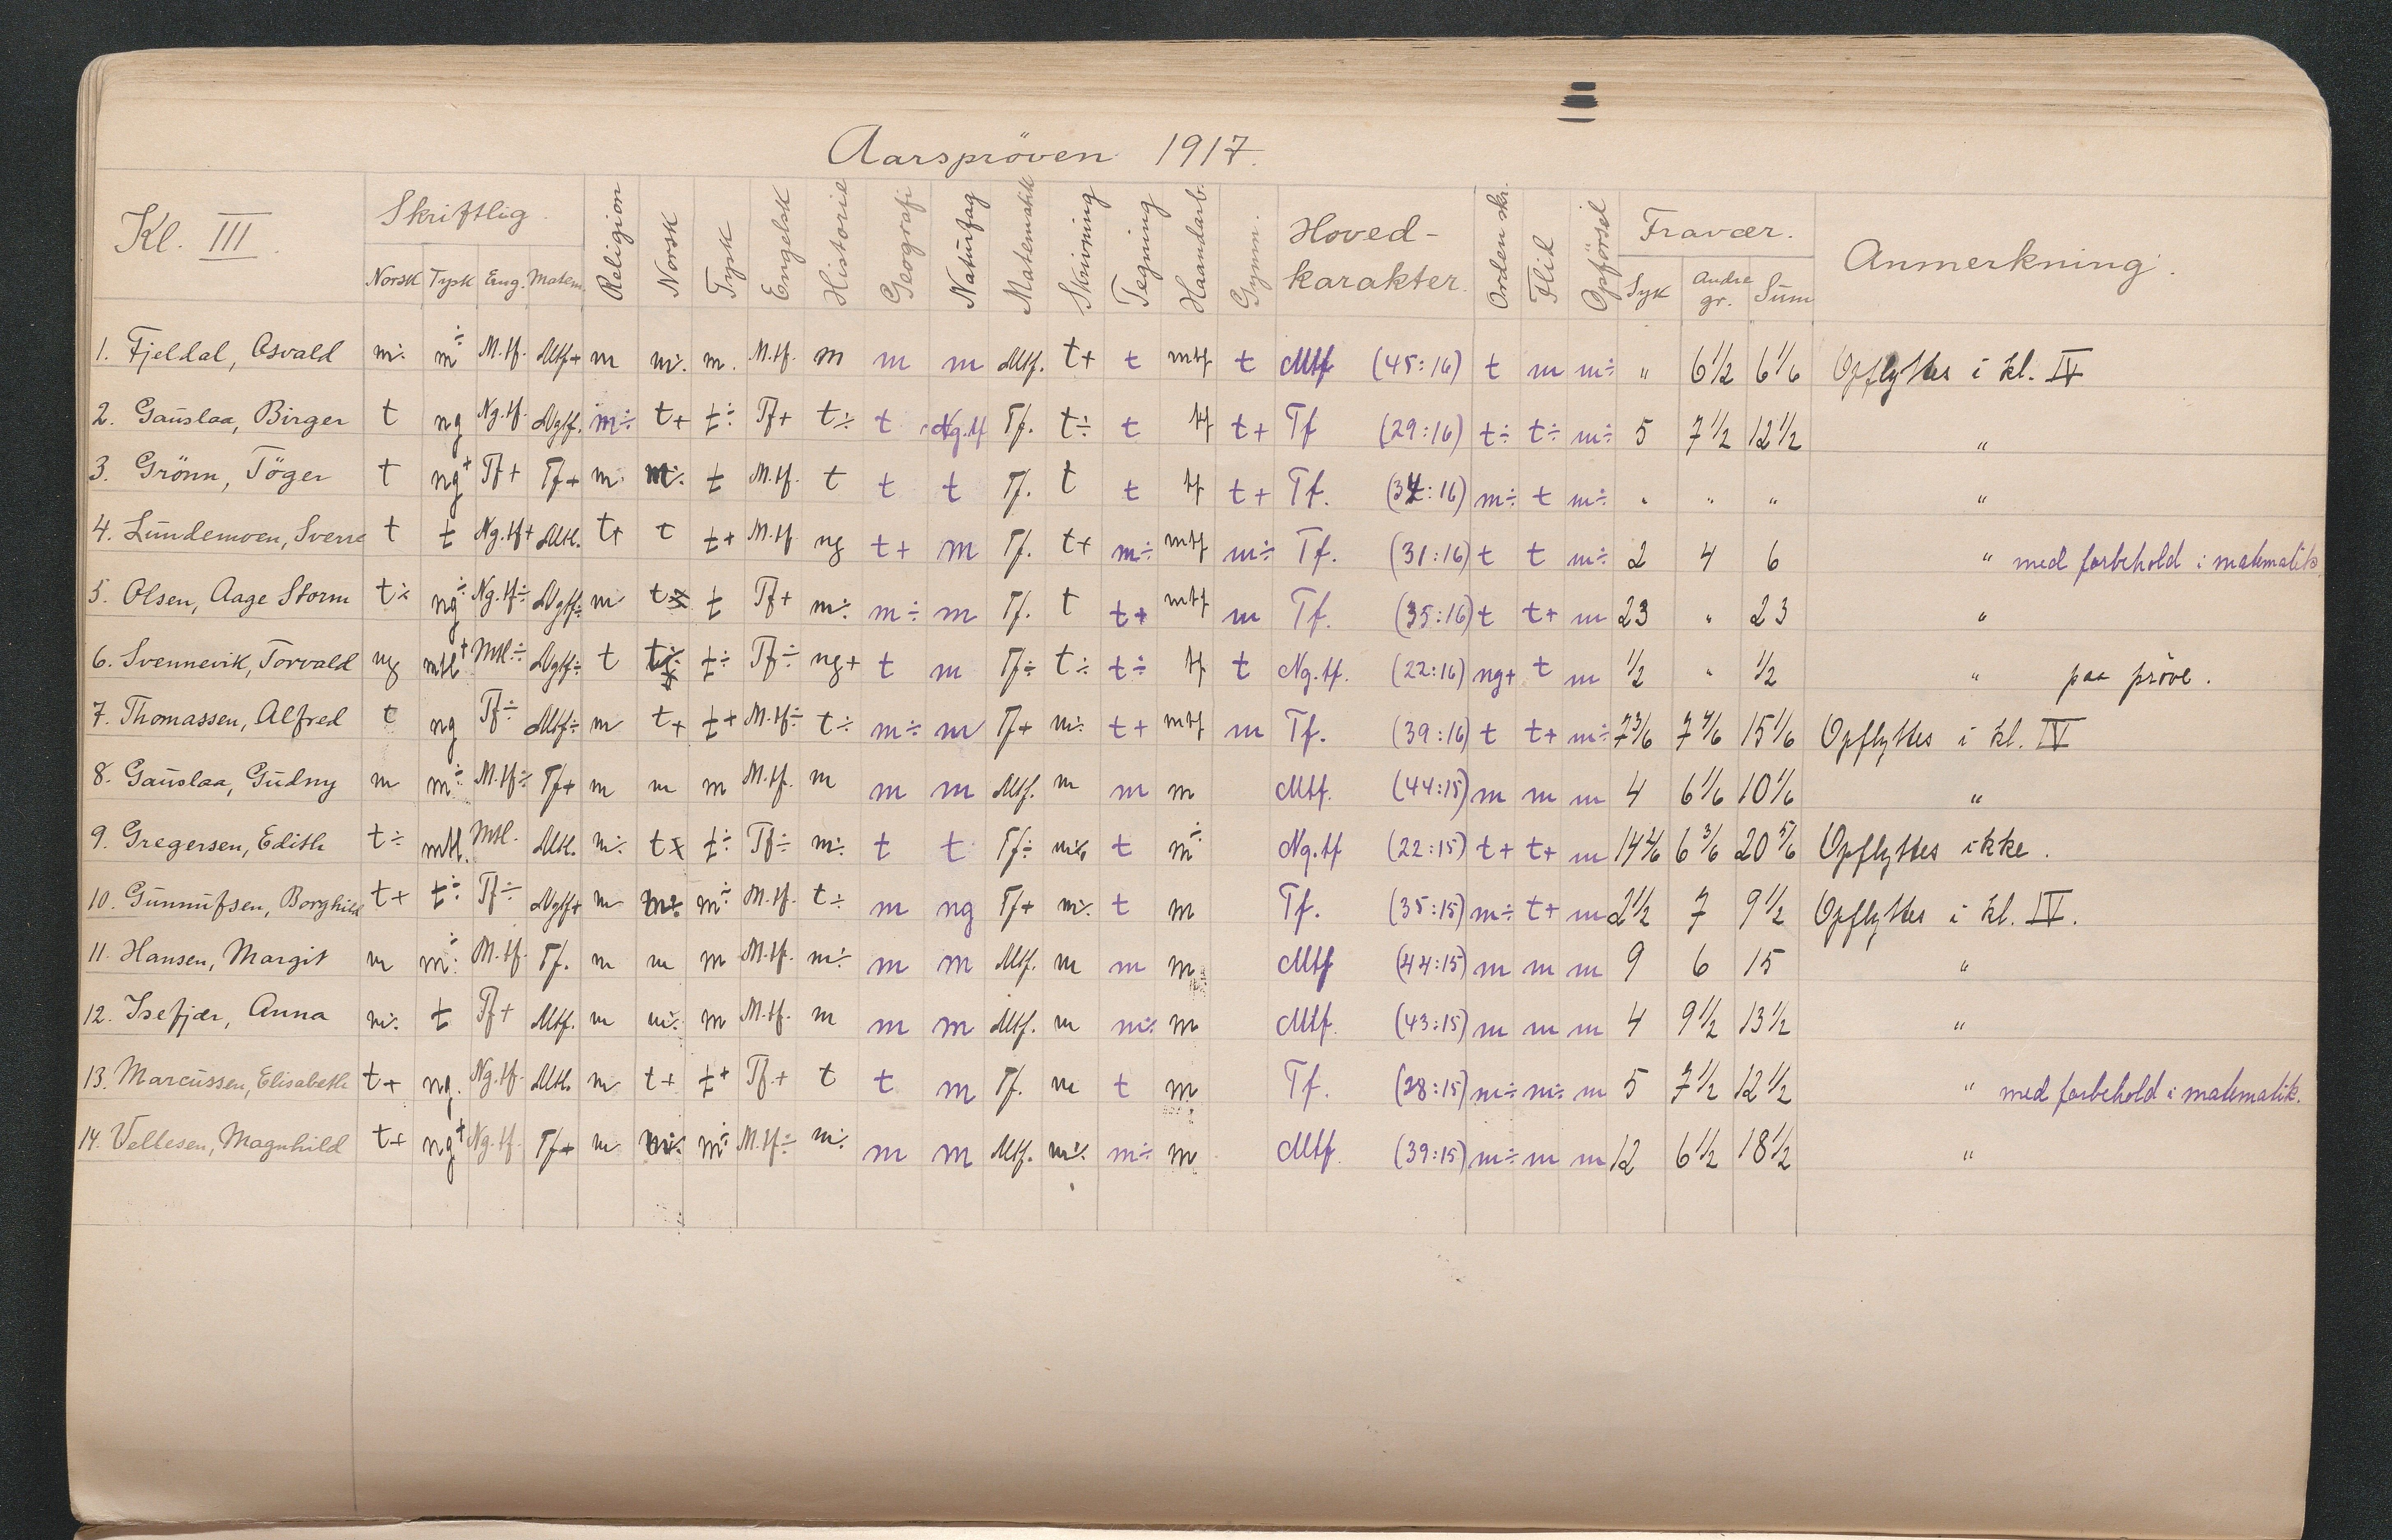 Aarspröven 1917.
Kl. III. Skriftlig. Religion Norsk Tysk Engelsk Historie Geografi Naturfag Matematik Skrivning Tegning Haandarb. Gymn. Hoved-karakter. Orden skr. Flid Opförsel Fravær. Anmerkning.
Norsk Tysk Eng. Matem. Syk Andre gr. Sum
1. Fjeldal, Osvald m÷ m÷ M.tf. Mtf+ m m÷ m. M.tf. m m m Mtf. t+ t mtf t Mtf (45:16) t m m÷ " 6 1/2 6 1/6 Opflyttes i kl. IV
2. Gauslaa, Birger t ng Ng.tf. Ngtf. m÷ t+ t÷ Tf+ t÷ t Ng.tf Tf. t÷ t tf t+ Tf (29:16) t÷ t÷ m÷ 5 7 1/2 12 1/2 "
3. Grönn, Töger t ng+ Tf+ Tf+ m m÷ t M.tf. t t t Tf. t t tf t+ Tf. (34:16) m÷ t m÷ " " " "
4. Lundemoen, Sverre t t Ng.tf+ Mtl. t+ t t+ M.tf ng t+ m Tf. t+ m÷ mtf m÷ Tf. (31:16) t t m÷ 2 4 6 " med forbehold i matematik
5. Olsen, Aage Storm t÷ ng÷ Ng.tf÷ Ngtf÷ m t t Tf+ m÷ m÷ m Tf. t t+ mtf m Tf. (35:16) t t+ m 23 " 23 "
6. Svennevik, Torvald ng mtl+ Mtl÷ Ngtf÷ t t÷ Tf÷ ng+ t m Tf÷ t÷ t÷ tf t Ng.tf. (22:16) ng+ t m 1/2 " 1/2 " paa pröve.
7. Thomassen, Alfred t ng Tf÷ Mtf÷ m t+ t+ M.tf÷ t÷ m÷ m Tf+ m÷ t+ mtf m Tf. (39:16) t t+ m÷ 7 3/6 7 4/6 15 1/6 Opflyttes i kl. IV
8. Gauslaa, Gudny m m÷ M.tf÷ Tf+ m m m M.tf. m m m Mtf. m m m Mtf. (44:15) m m m 4 6 1/6 10 1/6 "
9. Gregersen, Edith t÷ mtl. Mtl. Mtl. m÷ t t÷ Tf÷ m÷ t t Tf÷ m÷ t m÷ Ng.tf (22:15) t+ t+ m 14 2/6 6 3/6 20 5/6 Opflyttes ikke.
10. Gunnufsen, Borghild t+ t÷ Tf÷ Ngtf+ m m÷ m÷ M.tf. t÷ m ng Tf+ m÷ t m Tf. (35:15) m÷ t+ m 2 1/2 7 9 1/2 Opflyttes i kl. IV.
11. Hansen, Margit m m÷ M.tf. Tf. m m m M.tf. m÷ m m Mtf. m m m Mtf (44:15) m m m 9 6 15 "
12. Isefjær, Anna m÷ t Tf+ Mtf. m m÷ m M.tf. m m m Mtf. m m÷ m Mtf. (43:15) m m m 4 9 1/2 13 1/2 "
13. Marcussen, Elisabeth t+ ng. Ng.tf. Mtl. m t+ t+ Tf+ t t m Tf. m t m Tf. (28:15) m÷ m÷ m 5 7 1/2 12 1/2 " med forbehold i matematik.
14. Vellesen, Magnhild t+ ng+ Ng.tf. Tf+ m m÷ m÷ M.tf÷ m÷ m m Mtf. m÷ m÷ m Mtf. (39:15) m÷ m m 12 6 1/2 18 1/2 "